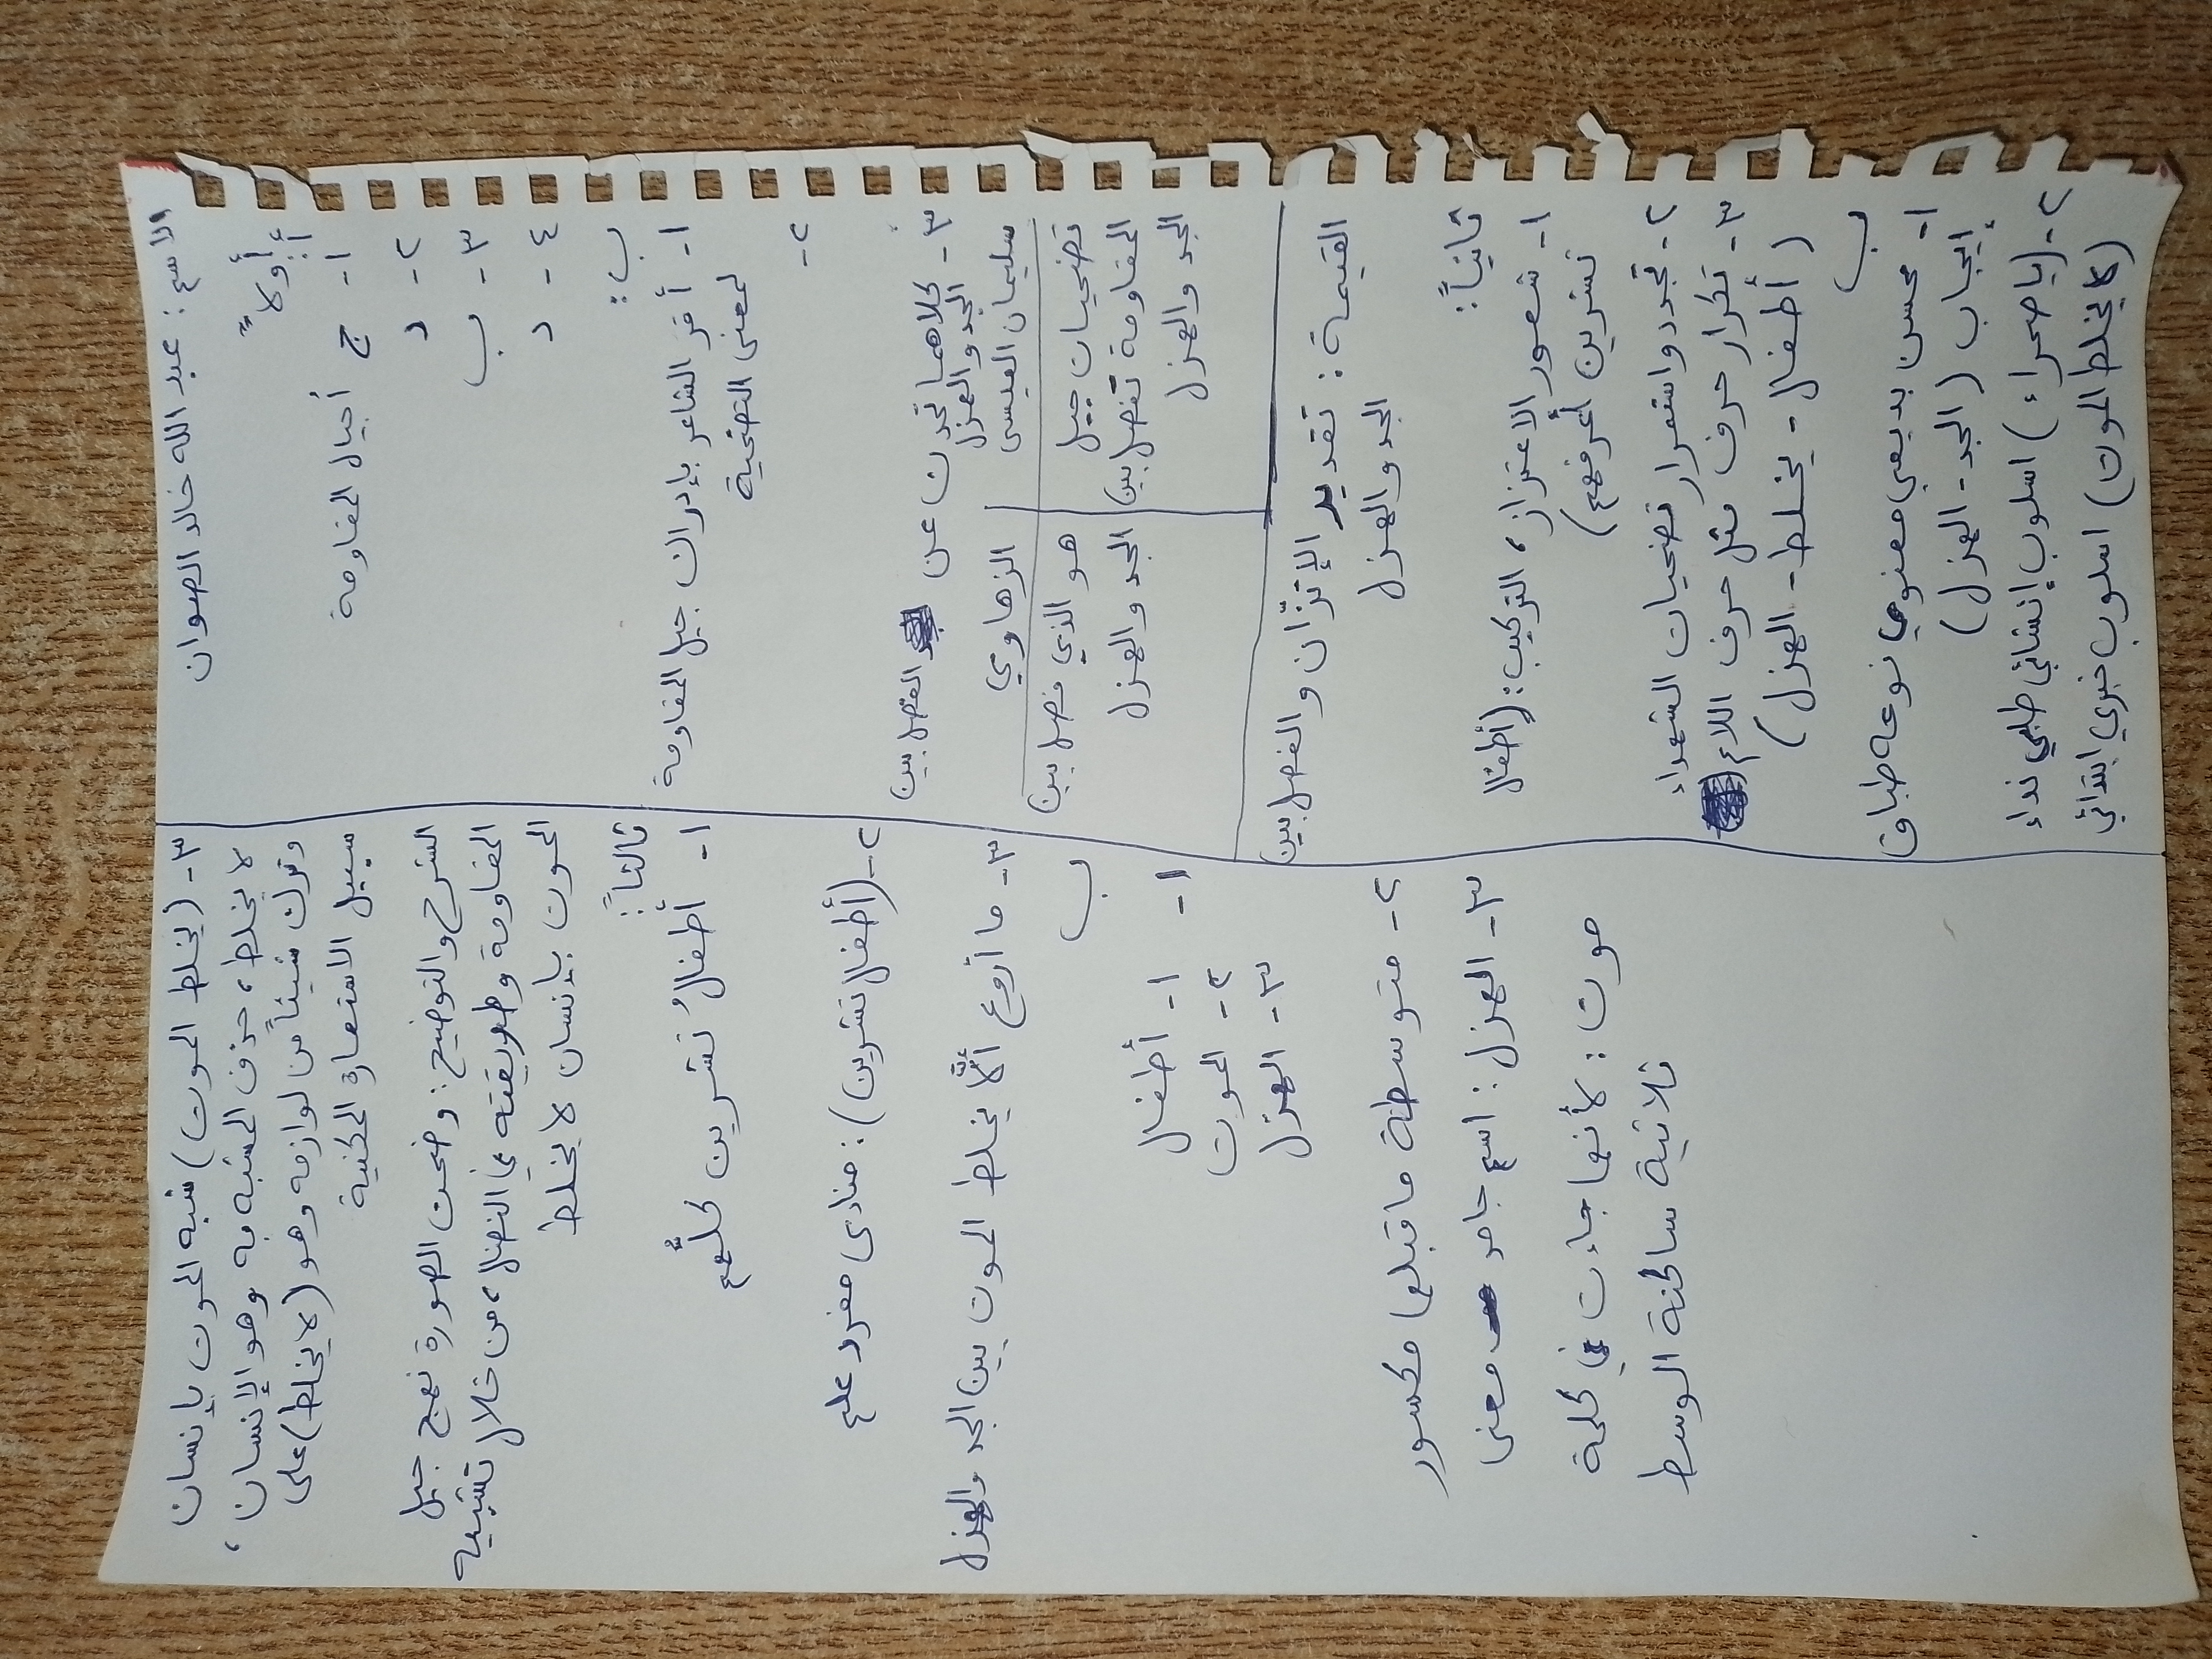 الاسم: عبد الله خالد الصوان
أولاً:
أ:
١- ج أجيال المقاومة
٢- د
٣- ب
٤- د
ب:
١- أقرَ الشاعر بإدراك جيل المقاومة
لمعنى التضحية
٢-
٣- كلاهما تحدث عن الفصل بين
الجد والهزل
سليمان العيسى
الزهاوي
تضحيات جيل
المقاومة تفصل بين
الجد والهزل
هو الذي فصل بين
الجد والهزل
القيمة: تقدير الإتزّان والفصل بين
الجد والهزل
ثانياً:
١- شعور الاعتزاز، التركيب: (أطفال
تشرين أعرفهم)
٢- تجدد واستمرار تضحيات الشهداء
٣- تكرار حرف مثل حرف اللام
(أطفال - يخلط - الهزل)
ب
١- محسن بديعي معنوي نوعه طباق
إيجاب (الجد - الهزل)
٢- (ياصحراء) اسلوب إنشائي طلبي نداء
(لا يخلط الموت) اسلوب خبري ابتدائي
٣- (يخلط الموت) شبه الموت بإنسان
لا يخلط، حذف المشبه به وهو الإنسان،
وترك شيئاً من لوازمه وهو (لا يخلط) على
سبيل الاستعارة المكنية
الشرح والتوضيح: وضحت الصورة نهج جيل
المقاومة وطريقته في النضال، من خلال تشبيه
الموت بإنسان لا يخلط
ثالثاً:
١- أطفالُ تشرين كلُّهم
٢- (أطفال تشرين): منادى مفرد علم
٣- ما أروع ألّا يخلط الموت بين الجد والهزل
ب
١-
١- أطفال
٢- الموت
٣- الهزل
٢- متوسطة ماقبلها مكسور
٣- الهزل: اسم جامد معنى
موت: لأنها جاءت في كلمة
ثلاثية ساكنة الوسط